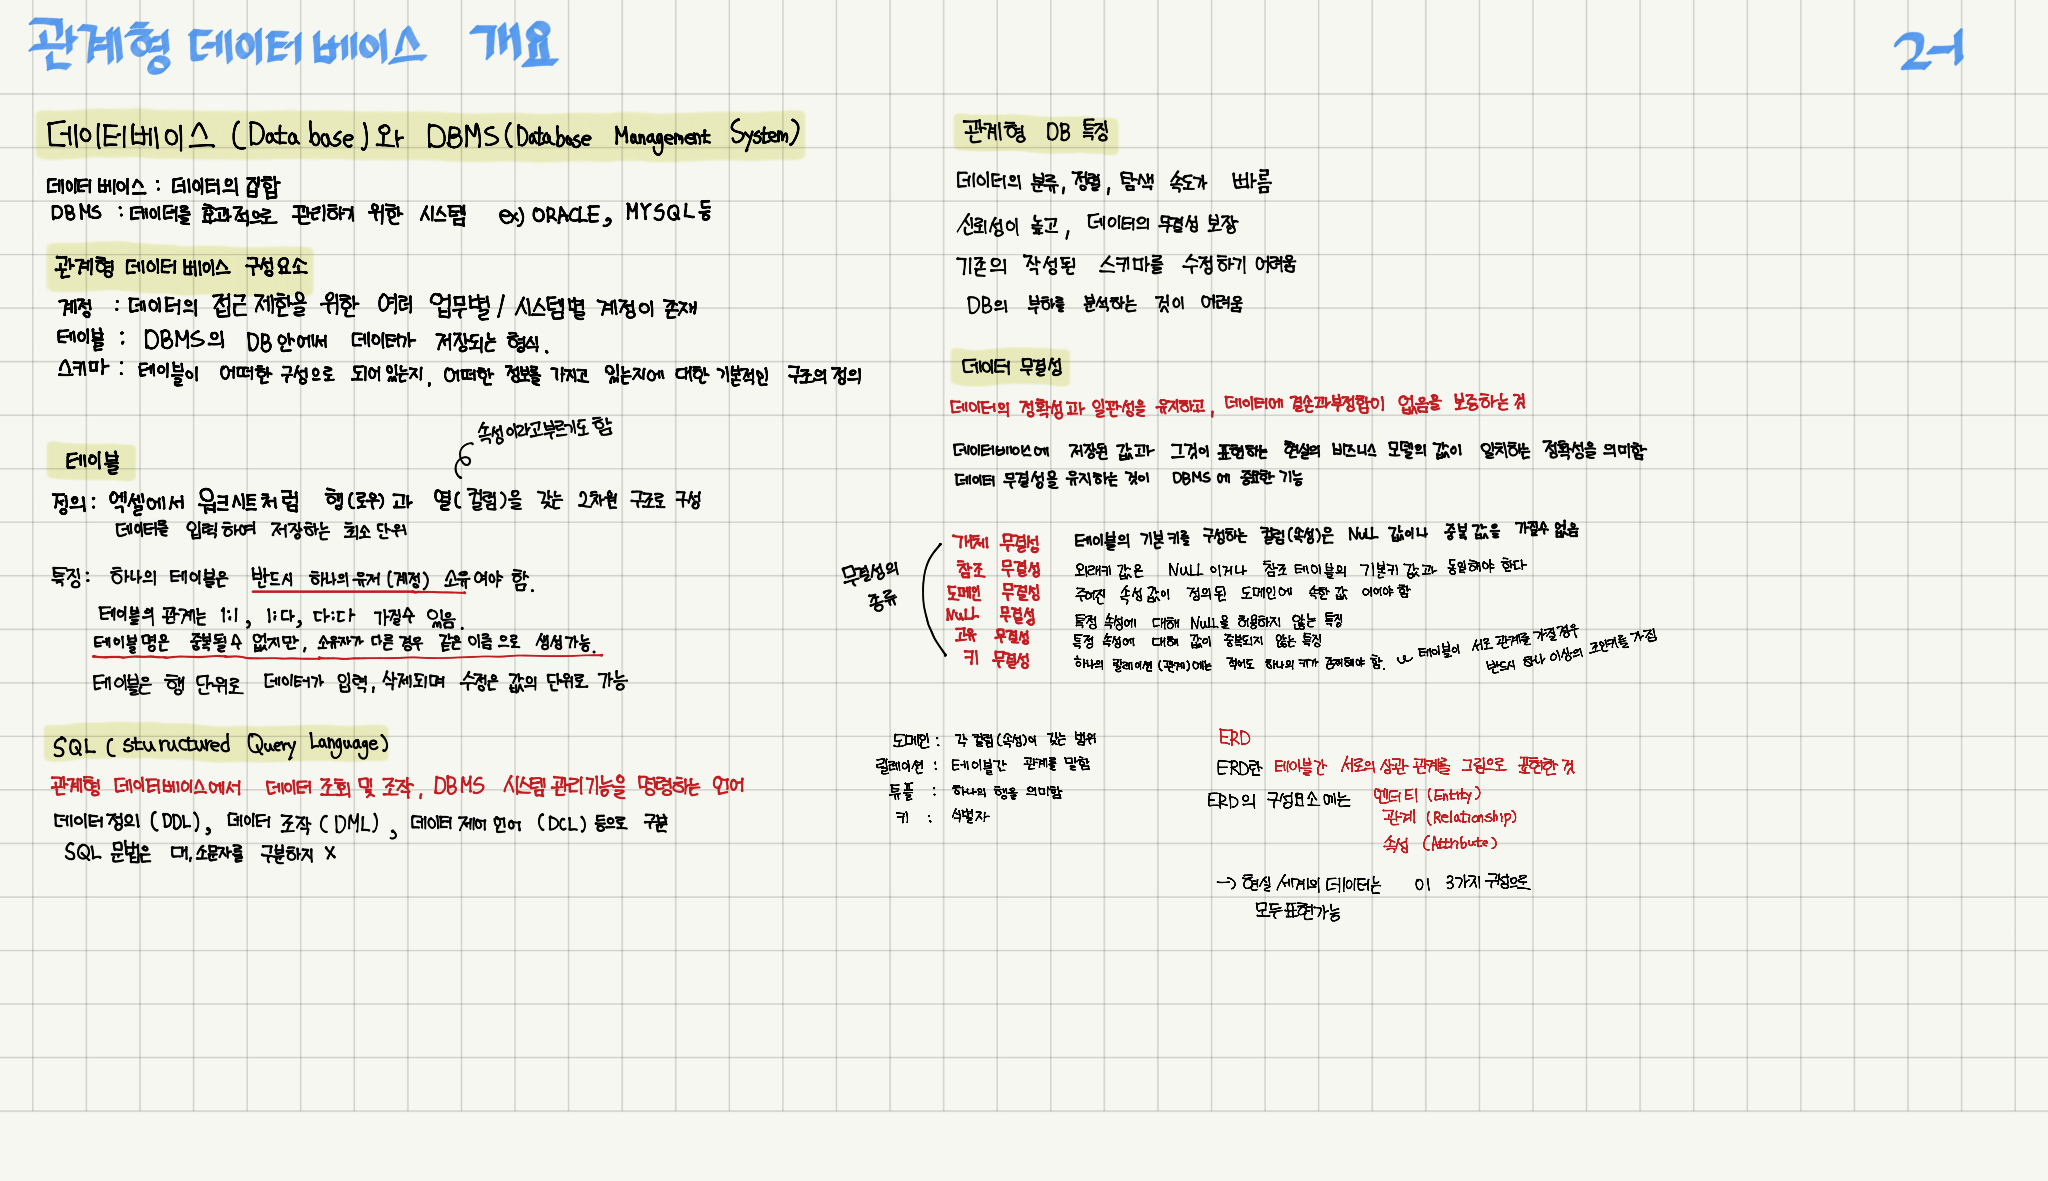 관계형 데이터베이스 개요
2-1
데이터베이스 (Database)와 DBMS(Database Management System)
데이터베이스 : 데이터의 집합
DBMS : 데이터를 효과적으로 관리하기 위한 시스템 ex) ORACLE, MYSQL 등
관계형 데이터베이스 구성요소
계정 : 데이터의 접근 제한을 위한 여러 업무별 / 시스템별 계정이 존재
테이블 : DBMS의 DB 안에서 데이터가 저장되는 형식.
스키마 : 테이블이 어떠한 구성으로 되어있는지, 어떠한 정보를 가지고 있는지에 대한 기본적인 구조의 정의
속성이라고 부르기도 함
테이블
정의 : 엑셀에서 워크시트처럼 행(로우)과 열(컬럼)을 갖는 2차원 구조로 구성
데이터를 입력하여 저장하는 최소 단위
특징 : 하나의 테이블은 반드시 하나의 유저(계정) 소유여야 함.
테이블의 관계는 1:1, 1:다, 다:다 가질수 있음.
테이블명은 중복될 수 없지만, 소유자가 다른 경우 같은 이름으로 생성가능.
테이블은 행 단위로 데이터가 입력, 삭제되며 수정은 값의 단위로 가능
SQL ( stuructured Query Language)
관계형 데이터베이스에서 데이터 조회 및 조작, DBMS 시스템 관리기능을 명령하는 언어
데이터정의 (DDL), 데이터 조작 (DML), 데이터 제어 언어 (DCL) 등으로 구분
SQL 문법은 대,소문자를 구분하지 X
관계형 DB 특징
데이터의 분류, 정렬, 탐색 속도가 빠름
신뢰성이 높고, 데이터의 무결성 보장
기존의 작성된 스키마를 수정하기 어려움
DB의 부하를 분석하는 것이 어려움
데이터 무결성
데이터의 정확성과 일관성을 유지하고, 데이터에 결손과 부정합이 없음을 보증하는 것
데이터베이스에 저장된 값과 그것이 표현하는 현실의 비즈니스 모델의 값이 일치하는 정확성을 의미함
데이터 무결성을 유지하는 것이 DBMS에 중요한 기능
무결성의 종류
개체 무결성 테이블의 기본키를 구성하는 컬럼(속성)은 NULL 값이나 중복값을 가질수 없음
참조 무결성 외래키 값은 NULL이거나 참조 테이블의 기본키 값과 동일해야 한다
도메인 무결성 주어진 속성값이 정의된 도메인에 속한 값 이어야 함
NULL 무결성 특정 속성에 대해 NULL을 허용하지 않는 특징
고유 무결성 특정 속성에 대해 값이 중복되지 않는 특징
키 무결성 하나의 릴레이션(관계)에는 적어도 하나의 키가 존재해야 함.
테이블이 서로 관계를 가질경우
반드시 하나 이상의 조인키를 가짐
도메인 : 각 컬럼(속성)이 갖는 범위
릴레이션 : 테이블간 관계를 말함
튜플 : 하나의 행을 의미함
키 : 식별자
ERD
ERD란 테이블간 서로의 상관 관계를 그림으로 표현한 것
ERD의 구성요소에는 엔터티 (Entity)
관계 (Relationship)
속성 (Attribute)
→ 현실 세계의 데이터는 이 3가지 구성으로
모두 표현가능